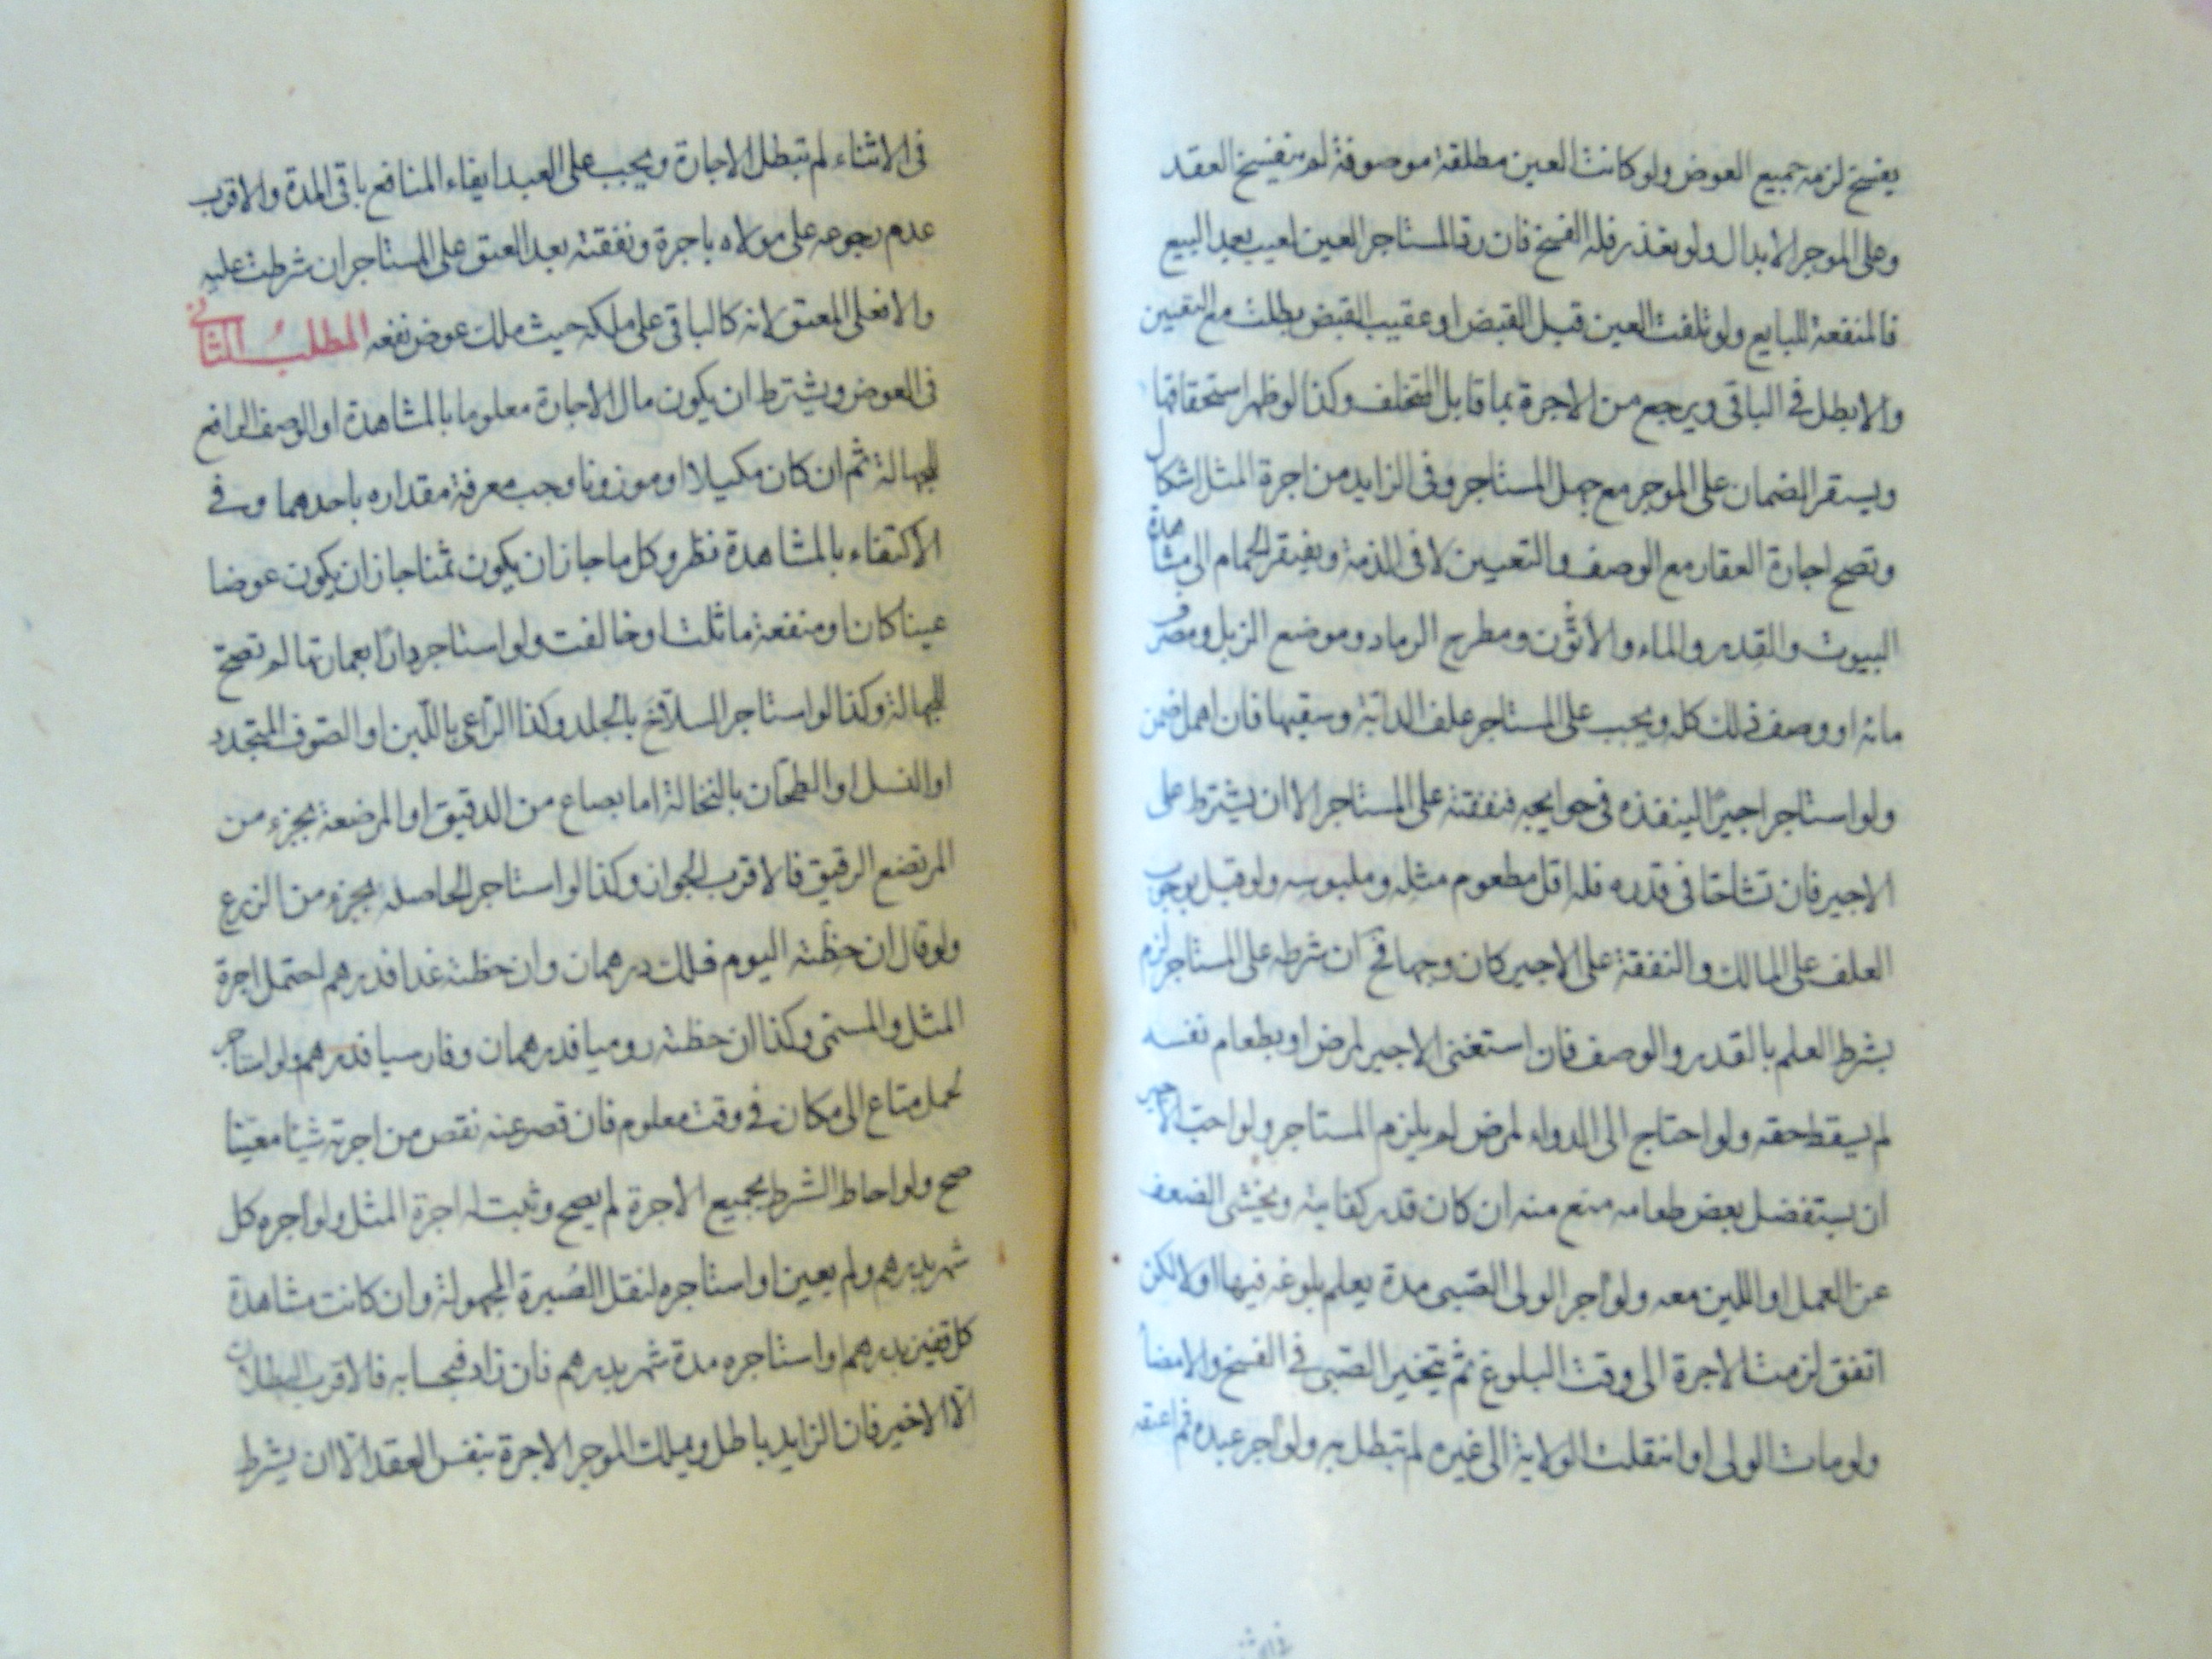 يفسخ لزمه جميع العوض ولو كانت العين مطلقة موصوفة لم ينفسخ العقد
وعلى الموجر الابدال ولو تعذر فله الفسخ فان رد المستاجر العين لعيب بعد البيع
فالمنفعة للبايع ولو تلفت العين قبل القبض او عقيب القبض بطلت مع التعيين
والا بطل في الباقي ويرجع من الاجرة بما قابل المتخلف وكذا لو ظهر استحقاقها
ويستقر الضمان على الموجر مع جهل المستاجر وفى الزايد من اجرة المثل اشكال
وتصح اجارة العقار مع الوصف والتعيين لا فى الذمة ويفتقر الحمام الى مشاهدة
البيوت والقدر والماء والأتّون ومطرح الرماد وموضع الزبل ومصرف
مائه او وصف ذلك كله ويجب على المستاجر علف الدابّة وسقيها فان اهمل ضمن
ولو استاجر اجيرًا لينفذه فى حوايجه فنفقته على المستاجر الا ان يشترط على
الاجير فان تشاحّا فى قدره فله اقل مطعوم مثله وملبوسه ولو قيل بوجوب
العلف على المالك والنفقة على الاجير كان وجها فح ان شرطه على المستاجر لزم
بشرط العلم بالقدر والوصف فان استغنى الاجير لمرض او بطعام نفسه
لم يسقط حقه ولو احتاج الى الدواء لمرض لم يلزم المستاجر ولو احبّ الاجير
ان يستفضل بعض طعامه منع منه ان كان قدر كفايته ويخشى الضعف
عن العمل او اللبن معه ولو أجر الولى الصّبى مدة يعلم بلوغه فيها اولا لكن
اتفق لزمت الاجرة الى وقت البلوغ ثم يتخير الصّبى في الفسخ والامضا
ولو مات الولى او انتقلت الولاية الى غيره لم تبطل به ولو أجر عبده ثم اعتقه
فى الاثناء
فى الاثناء لم تبطل الاجارة ويجب على العبد ايفاء المنافع باقى المدة والاقرب
عدم رجوعه على مولاه باجرة ونفقته بعد العتق على المستاجر ان شرطت عليه
والا فعلى المعتق لانه كالباقى على ملكه حيث ملك عوض نفعه المطلبُ الثانى
فى العوض ويشترط ان يكون مال الاجارة معلوما بالمشاهدة او الوصف الرافع
للجهالة ثم ان كان مكيلا او موزونا وجب معرفة مقداره باحدهما وفي
الاكتفاء بالمشاهدة نظر وكل ما جاز ان يكون ثمنا جاز ان يكون عوضا
عينا كان او منفعة ماثلت او خالفت ولو استاجر دارًا بعمارتها لم تصح
للجهالة وكذا لو استاجر السلاّخ بالجلد وكذا الرّاعى باللّبن او الصّوف المتجدد
او النسل او الطحّان بالنخالة اما بصاع من الدقيق او المرضعة بجزء من
المرتضع الرقيق فالاقرب الجواز وكذا لو استاجر لحاصده بجزء من الزرع
ولو قال ان خطته اليوم فلك درهمان وان خطته غدا فدرهم احتمل اجرة
المثل والمسمّى وكذا ان خطته روميا فدرهمان وفارسيا فدرهم ولو استاجر
لحمل متاع الى مكان فى وقت معلوم فان قصر عنه نقص من اجرته شيئا معيّنا
صح ولو احاط الشرط بجميع الاجرة لم يصح وثبت له اجرة المثل ولو أجره كل
شهر بدرهم ولم يعين او استأجره لنقل الصُبرة المجهولة وان كانت مشاهدة
كل قفيز بدرهم او استاجره مدة شهر بدرهم فان زاد فبحسابه فالاقرب البطلان
الّا الاخير فان الزايد باطل ويملك الموجر الاجرة بنفس العقد الّا ان يشرط